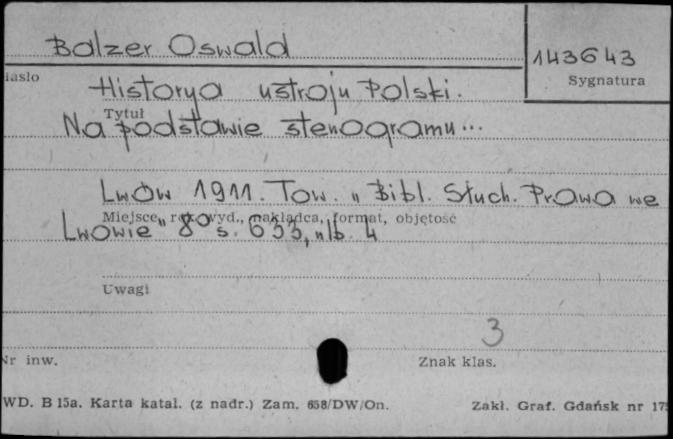 Balzer Oswald
143643
iasło
Sygnatura
Historya ustroju Polski.
Tytuł
Na podstawie stenogramu...
Lwów 1911. Tow. „Bibl. Słuch. Prawa we
Miejsce, rok wyd., nakładca, format, objętość
Lwowie" 8° s. 633, nlb. 4
Uwagi
3
Nr inw.
Znak klas.
WD. B 15a. Karta katal. (z nadr.) Zam. 658/DW/On.
Zakł. Graf. Gdańsk nr 175